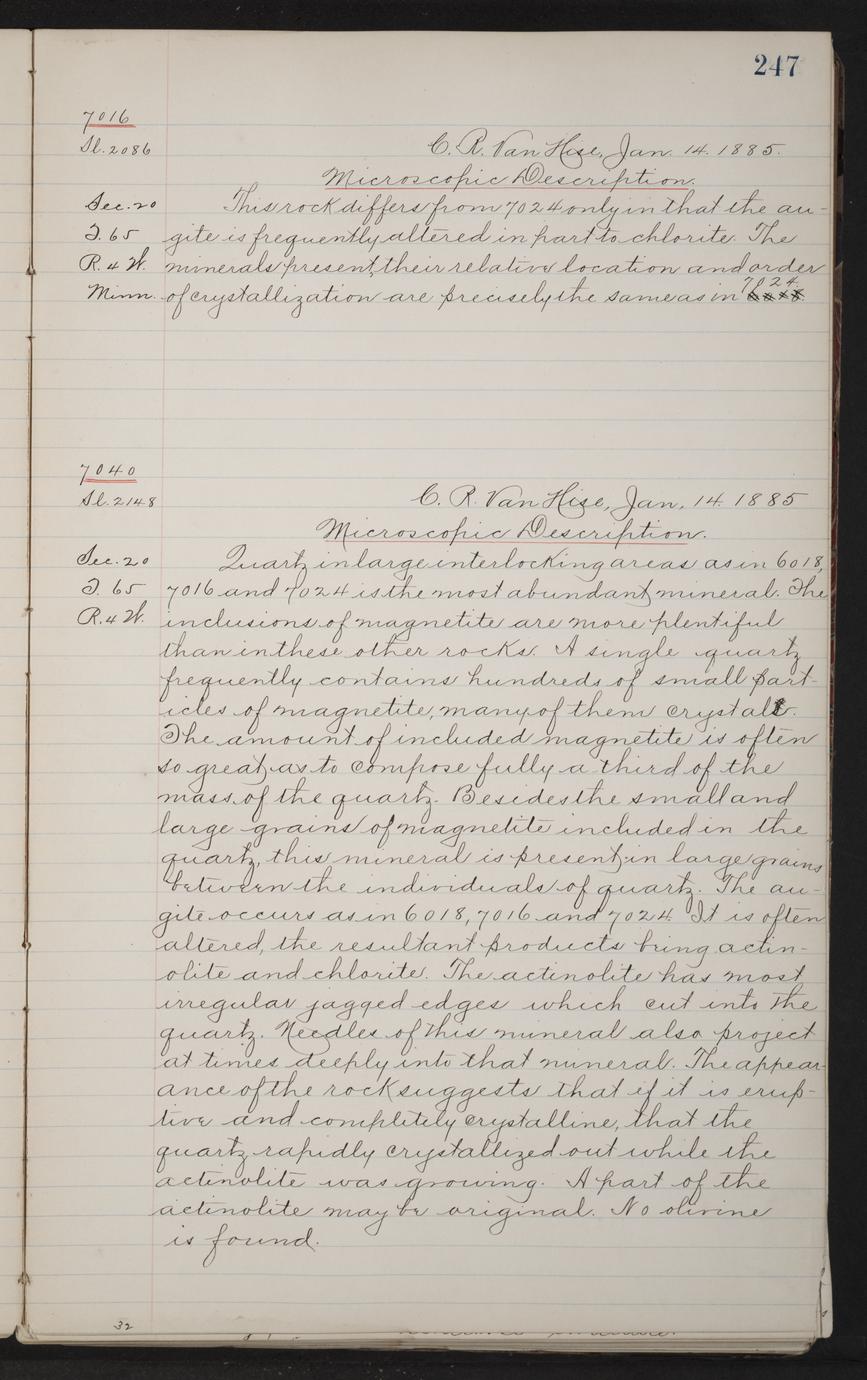 247
7016
Sl. 2086
C. R. Van Hise, Jan. 14. 1885.
Microscopic Description.
Sec. 20
T. 65
R. 4 W.
Minn.
This rock differs from 7024 only in that the au-
gite is frequently altered in part to chlorite. The
minerals present, their relative location and order
of crystallization are precisely the same as in 7024
7040
Sl. 2148
C. R. Van Hise, Jan. 14. 1885
Microscopic Description.
Sec. 20
T. 65
R. 4 W.
Quartz in large interlocking areas as in 6018,
7016 and 7024 is the most abundant mineral. The
inclusions of magnetite are more plentiful
than in these other rocks. A single quartz
frequently contains hundreds of small part-
icles of magnetite, many of them crystals.
The amount of included magnetite is often
so great as to compose fully a third of the
mass of the quartz. Besides the small and
large grains of magnetite included in the
quartz, this mineral is present in large grains
between the individuals of quartz. The au-
gite occurs as in 6018, 7016 and 7024. It is often
altered, the resultant products being actin-
olite and chlorite. The actinolite has most
irregular jagged edges which cut into the
quartz. Needles of this mineral also project
at times deeply into that mineral. The appear-
ance of the rock suggests that if it is erup-
tive and completely crystalline, that the
quartz rapidly crystallized out while the
actinolite was growing. A part of the
actinolite may be original. No olivine
is found.
32